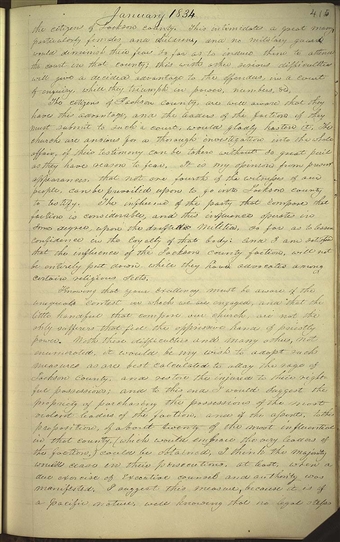 January 1834
416
the citizens of Jackson county. This intimidates a great many
particularly females and children, and no military guard
would diminish their fears so far as to induce them to attend
the court in that county; this with other serious difficulties
will give a decided advantage to the offenders in a court
of inquiry, while they triumph in power, numbers, &c.
The citizens of Jackson county are well aware that they
have this advantage, and the leaders of the faction if they
must submit to such a court, would gladly hasten it. The
church are anxious for a thorough investigation into the whole
affair, if their testimony can be taken without so great peril
as they have reason to fear. It is my opinion from present
appearances that not one fourth of the witnesses of our
people, can be prevailed upon to go into Jackson county
to testify. The influence of the party that compose that
faction is considerable, and this influence operates in
some degree, upon the drafted Militia, so far as to lessen
confidence in the loyalty of that body; and I am satisfied
that the influence of the Jackson County faction, will not
be entirely put down while they have advocates among
certain religious sects.
Knowing that your Excellency must be aware of the
unequal contest in which we are engaged, and that the
little handful that compose our church, are not the
only sufferers that feel the oppressive hand of priestly
power. With these difficulties and many others, not
enumerated, it would be my wish to adopt such
measures as are best calculated to allay the rage of
Jackson County, and restore the injured to their right-
ful possessions; and to this end I would suggest the
propriety of purchasing the possessions of the most
violent leaders of the faction, and if they assent to this
proposition, if about twenty of the most influential
in that county, (which would embrace the very leaders of
the faction,) could be obtained, I think the majority
would cease in their persecutions, at least, when a
due exercise of Executive counsel and authority was
manifested. I suggest this measure, because it is of
a pacific nature, well knowing that no legal steps